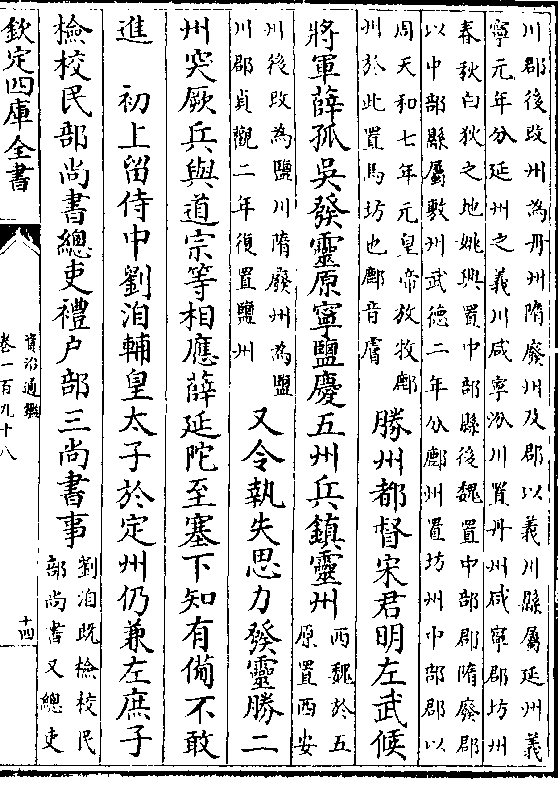 川郡後改州為丹州隋廢州及郡以義川縣屬延州義
寧元年分延州之義川咸寧汾川置丹州咸寧郡坊州
春秋白狄之地姚興置中部縣後魏置中部郡隋廢郡
以中部縣屬敷州武德二年分鄜州置坊州中部郡以
周天和七年元皇帝放牧鄜
州於此置馬坊也鄜音膚
勝州都督宋君明左武候
將軍薛孤吳發靈原寧鹽慶五州兵鎮靈州
西魏於五
原置西安
州後改為鹽川隋廢州為鹽
川郡貞觀二年復置鹽州
又令執失思力發靈勝二
州突厥兵與道宗等相應薛延陀至塞下知有備不敢
進　初上留侍中劉洎輔皇太子於定州仍兼左庶子
檢校民部尚書總吏禮户部三尚書事
劉洎既檢校民
部尚書又總吏
欽定四庫全書
資治通鑑
卷一百九十八
十四